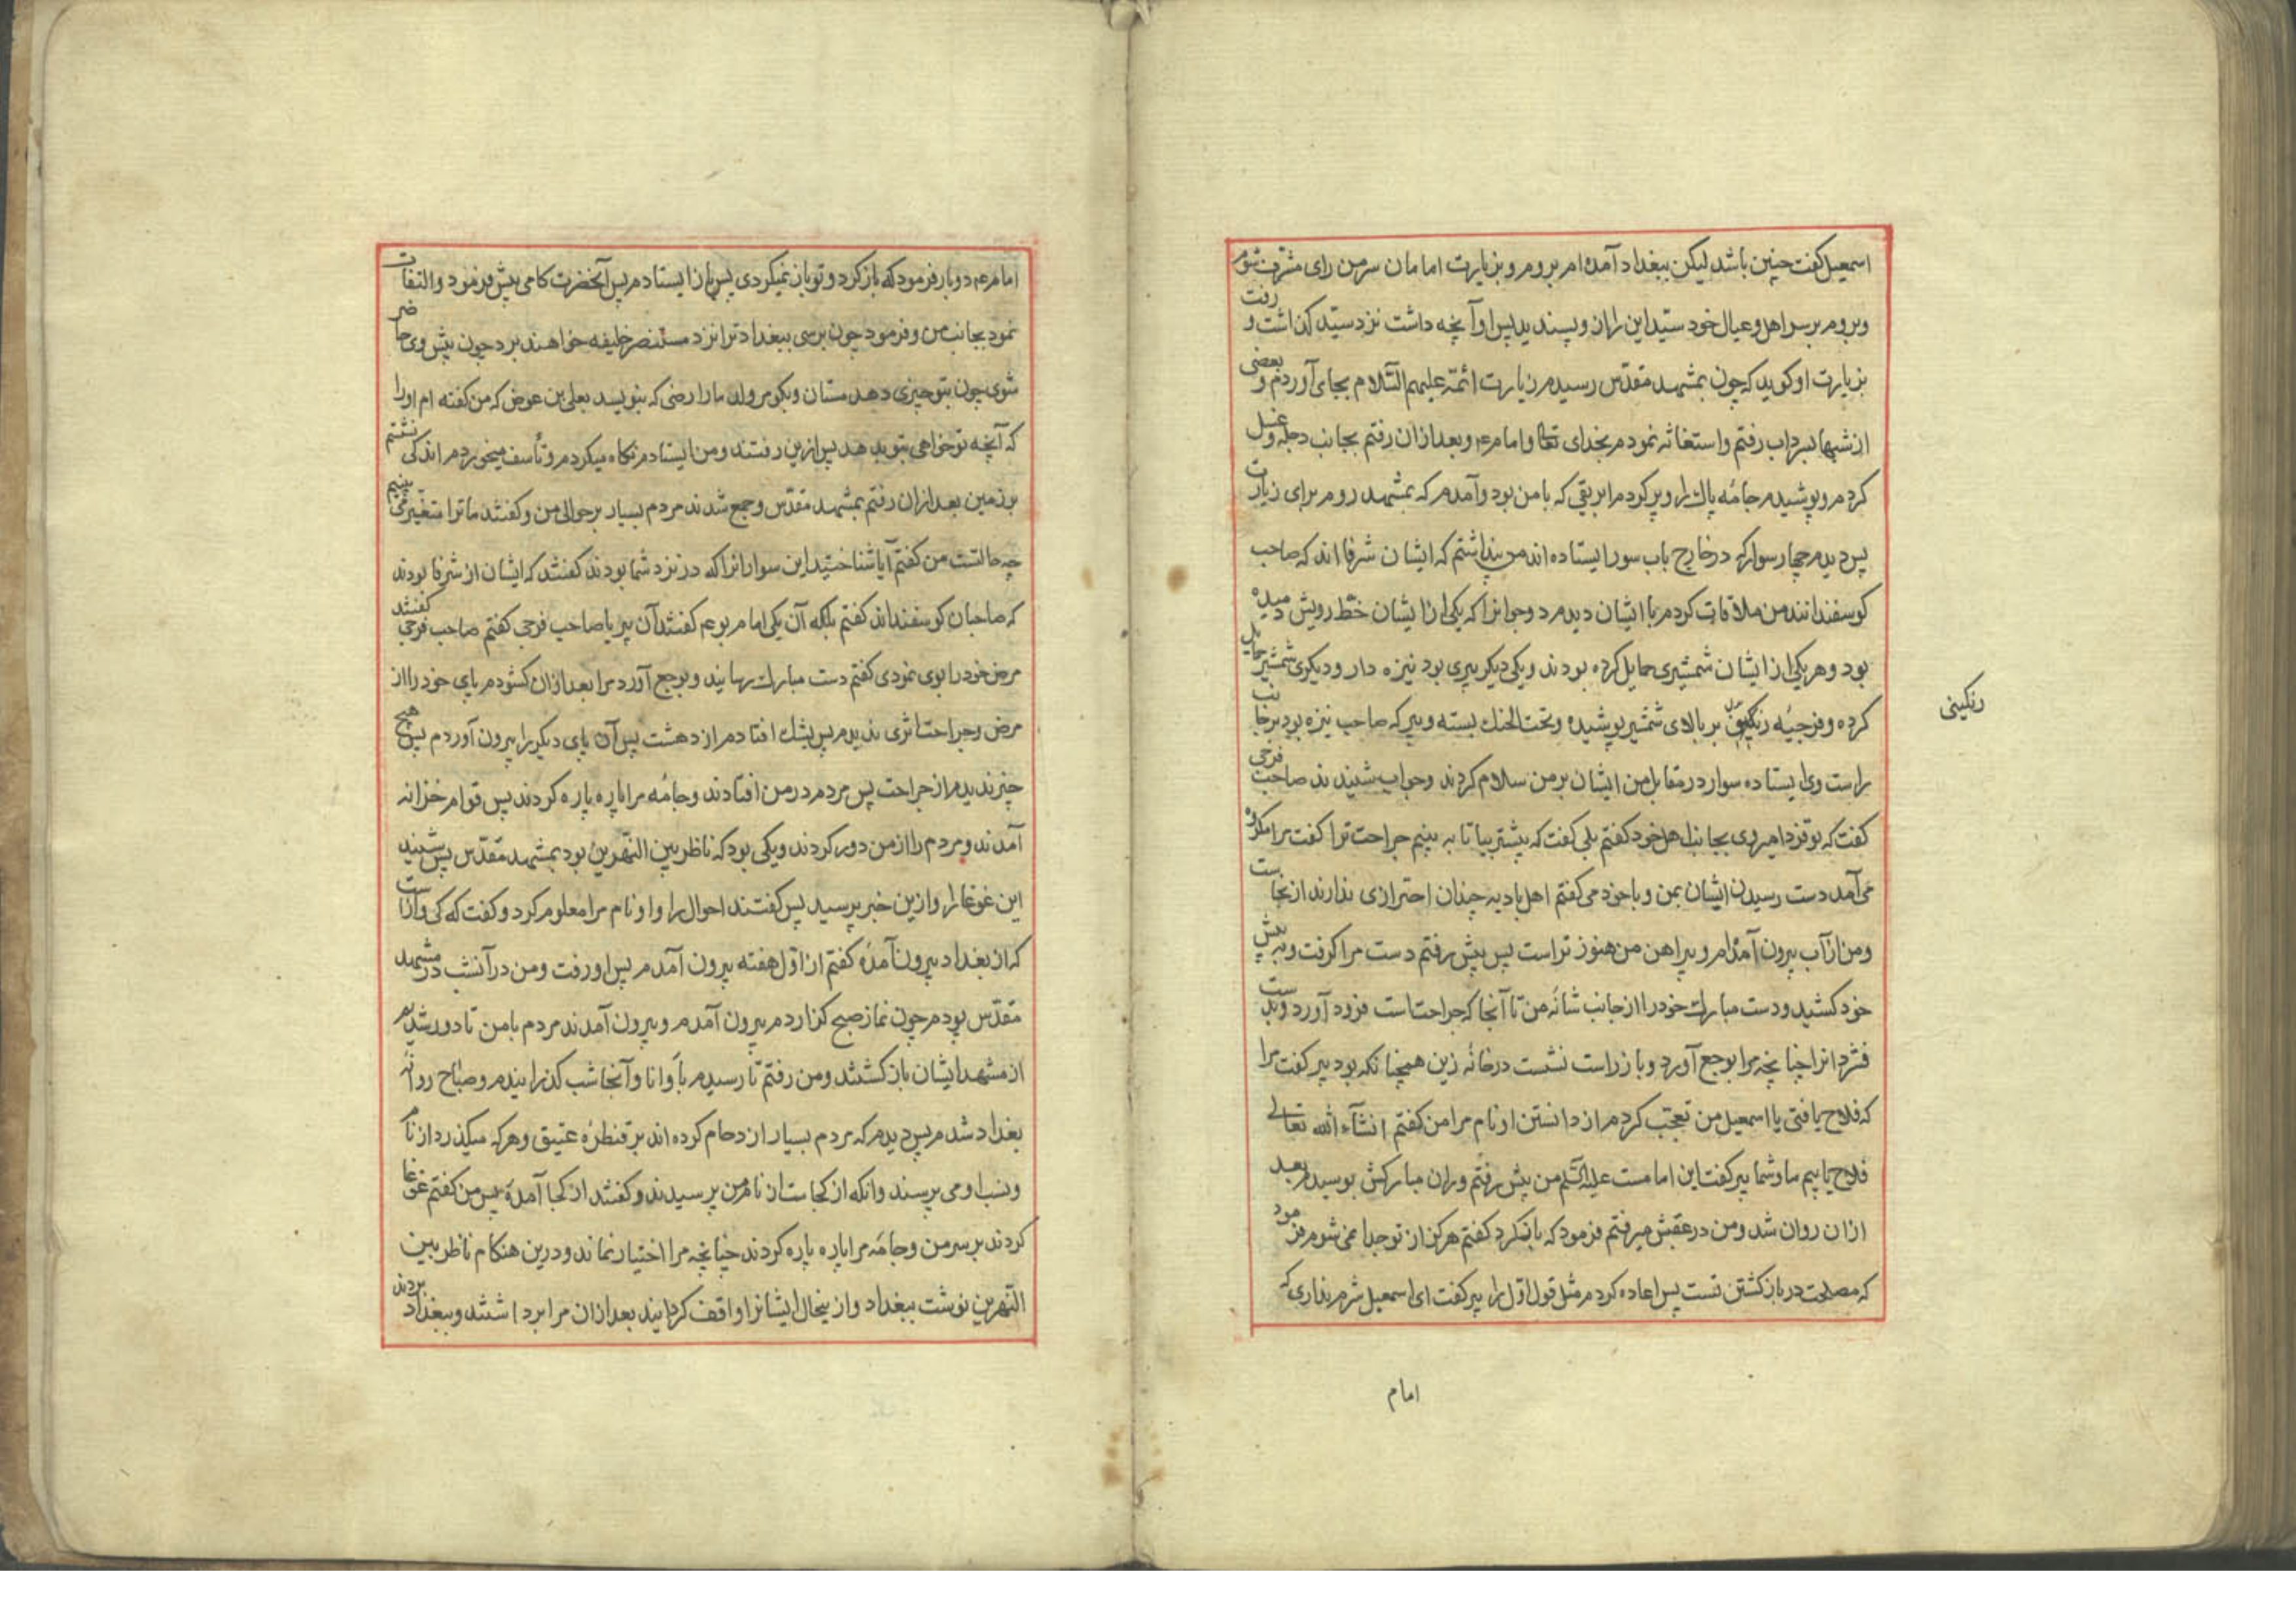 اسمعیل کفت چنین باشد لیکن ببغداد آمده ام بروم و بزیارت امامان سرمن رای مشرف شوم
و بروم بر سر اهل و عیال خود سید این را زان و پسندید پس او آنچه داشت نزد سید کذاشت و رفت
بزیارت او کوید که چون بمشهد مقدّس رسیدم زیارت ائمّه علیهم السّلام بجای آوردم و بعضی
از شبها بسرداب رفتم و استغاثه نمودم بخدای تعالی و امام ع و بعد از ان رفتم بجانب دجله و غسل
کردم و پوشیدم جامهٔ پاک را و پر کردم ابریقی که با من بود و آمدم که بمشهد روم برای زیارت
پس دیدم چهار سوار که در خارج باب سور ایستاده اند من پنداشتم که ایشان شرفا اند که صاحب
کوسفندانند من ملاقات کردم با ایشان دیدم دو جوانرا که یکی از ایشان خطّ رویش دمیده
بود و هر یکی از ایشان شمشیری حمایل کرده بودند و یکی دیکر پیری بود نیزه دار و دیکری شمشیر حمایل
کرده و فرجیهٔ رنکینی بر بالای شمشیر پوشیده و تحت الحنک بسته و پیر که صاحب نیزه بود بر جانب
رنکینی
راست وی ایستاده سوار در مقابل من ایشان بر من سلام کردند و جواب شنیدند صاحب فرجی
کفت که تو فردا میروی بجانب اهل خود کفتم بلی کفت که پیشتر بیا تا به بینم جراحت ترا کفت مرا مکروه
می آمد دست رسیدن ایشان بمن و با خود می کفتم اهل بادیه چندان احترازی ندارند از نجاست
و من از آب بیرون آمده ام و پیراهن من هنوز تر است پس پیش رفتم دست مرا کرفت و به پیش
خود کشید و دست مبارک خود را از جانب شانهٔ من تا آنجا که جراحتست فرود آورد و بدست
فشرد انرا چنانچه مرا بوجع آورد و باز راست نشست در خانهٔ زین همچنانکه بود پیر کفت مرا
که فلاح یافتی یا اسمعیل من تعجّب کردم از دانستن او نام مرا من کفتم انشآء الله تعالی
فلاح یابیم ما و شما پیر کفت این امامست علیه السّلم من پیش رفتم و ران مبارکش بوسیدم بعد
از ان روان شد و من در عقبش میرفتم فرمود که باز کرد کفتم هرکز از تو جدا نمی شوم فرمود
که مصلحت در باز کشتن تست پس اعاده کردم مثل قول اوّل را پیر کفت ای اسمعیل شرم نداری که
امام
امام ع دو بار فرمود که باز کرد و تو باز نمیکردی پس باز ایستادم پس آنحضرت کامی پیش فرمود و التفات
نمود بجانب من و فرمود چون برسی ببغداد ترا نزد مستنصر خلیفه خواهند برد چون پیش وی حاضر
شوی چون بتو چیزی دهد مستان و بکو مروان ما را رضی که بنویسد بعلی بن عوض که من کفته ام او را
که آنچه تو خواهی بتو بدهد پس ازین رفتند و من ایستادم نکاه میکردم و تأسف میخوردم اندکی نشتم
بر زمین بعد از ان رفتم بمشهد مقدّس و جمع شدند مردم بسیار بر حوالی من و کفتند ما ترا متغیّر می بینیم
چه حالتست من کفتم آیا شناختید این سوارانرا که در نزد شما بودند کفتند که ایشان از شرفا بودند
که صاحبان کوسفنداند کفتم بلکه آن یکی امام بود ع کفتند آن پیر یا صاحب فرجی کفتم صاحب فرجی کفتند
مرض خود را بوی نمودی کفتم دست مبارک بهانید و بوجع آورد مرا بعد از ان کشودم پای خود را از
مرض و جراحت اثری ندیدم پس بشک افتادم از دهشت پس آن پای دیکر را بیرون آوردم پس هیچ
چیز ندیدم از جراحت پس مردم در من افتادند و جامهٔ مرا پاره پاره کردند پس قوام خزانه
آمدند و مردم را از من دور کردند و یکی بود که ناظر بین النّهرین بود بمشهد مقدّس پس شنید
این غوغا را و ازین خبر پرسید پس کفتند احوال را و او نام مرا معلوم کرد و کفت که کی و از است
که از بغداد بیرون آمدهٔ کفتم از اوّل هفته بیرون آمدم پس او رفت و من در آنشب در مشهد
مقدّس بودم چون نماز صبح کزاردم بیرون آمدم و بیرون آمدند مردم با من تا دور شدیم
از مشهد ایشان باز کشتند و من رفتم تا رسیدم باوانا و آنجا شب کذرانیدم و صباح روانهٔ
بغداد شدم پس دیدم که مردم بسیار ازدحام کرده اند بر قنطرهٔ عتیق و هر که میکذرد از نام
و نسب او می پرسند و انکه از کجاست از نام من پرسیدند و کفتند از کجا آمدهٔ پس من کفتم غوغا
کردند بر سر من و جامهٔ مرا پاره پاره کردند چنانچه مرا اختیار نماند و درین هنکام ناظر بین
النّهرین نوشت ببغداد و از ینحال ایشانرا واقف کردانید بعد از ان مرا برداشتند و ببغداد بردند